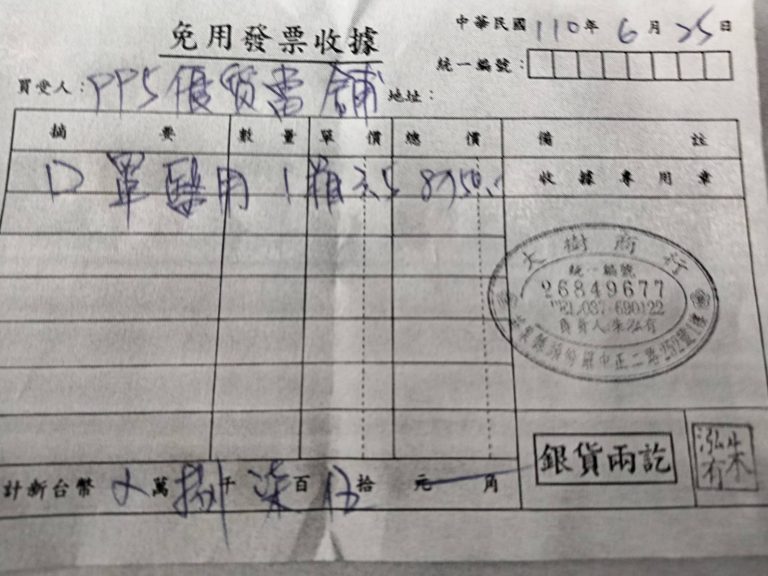 免用發票收據
中華民國110年6月25日
統一編號：
買受人：PPS優質當舖 地址：
摘要 數量 單價 總價 備註
口罩醫用 1箱 3.5 8750.- 收據專用章
大樹商行
統一編號
26849677
TEL:037-690122
負責人:朱泓有
苗栗縣頭份鎮中正二路
銀貨兩訖
朱泓有
計新台幣 萬捌千柒百伍拾元 角